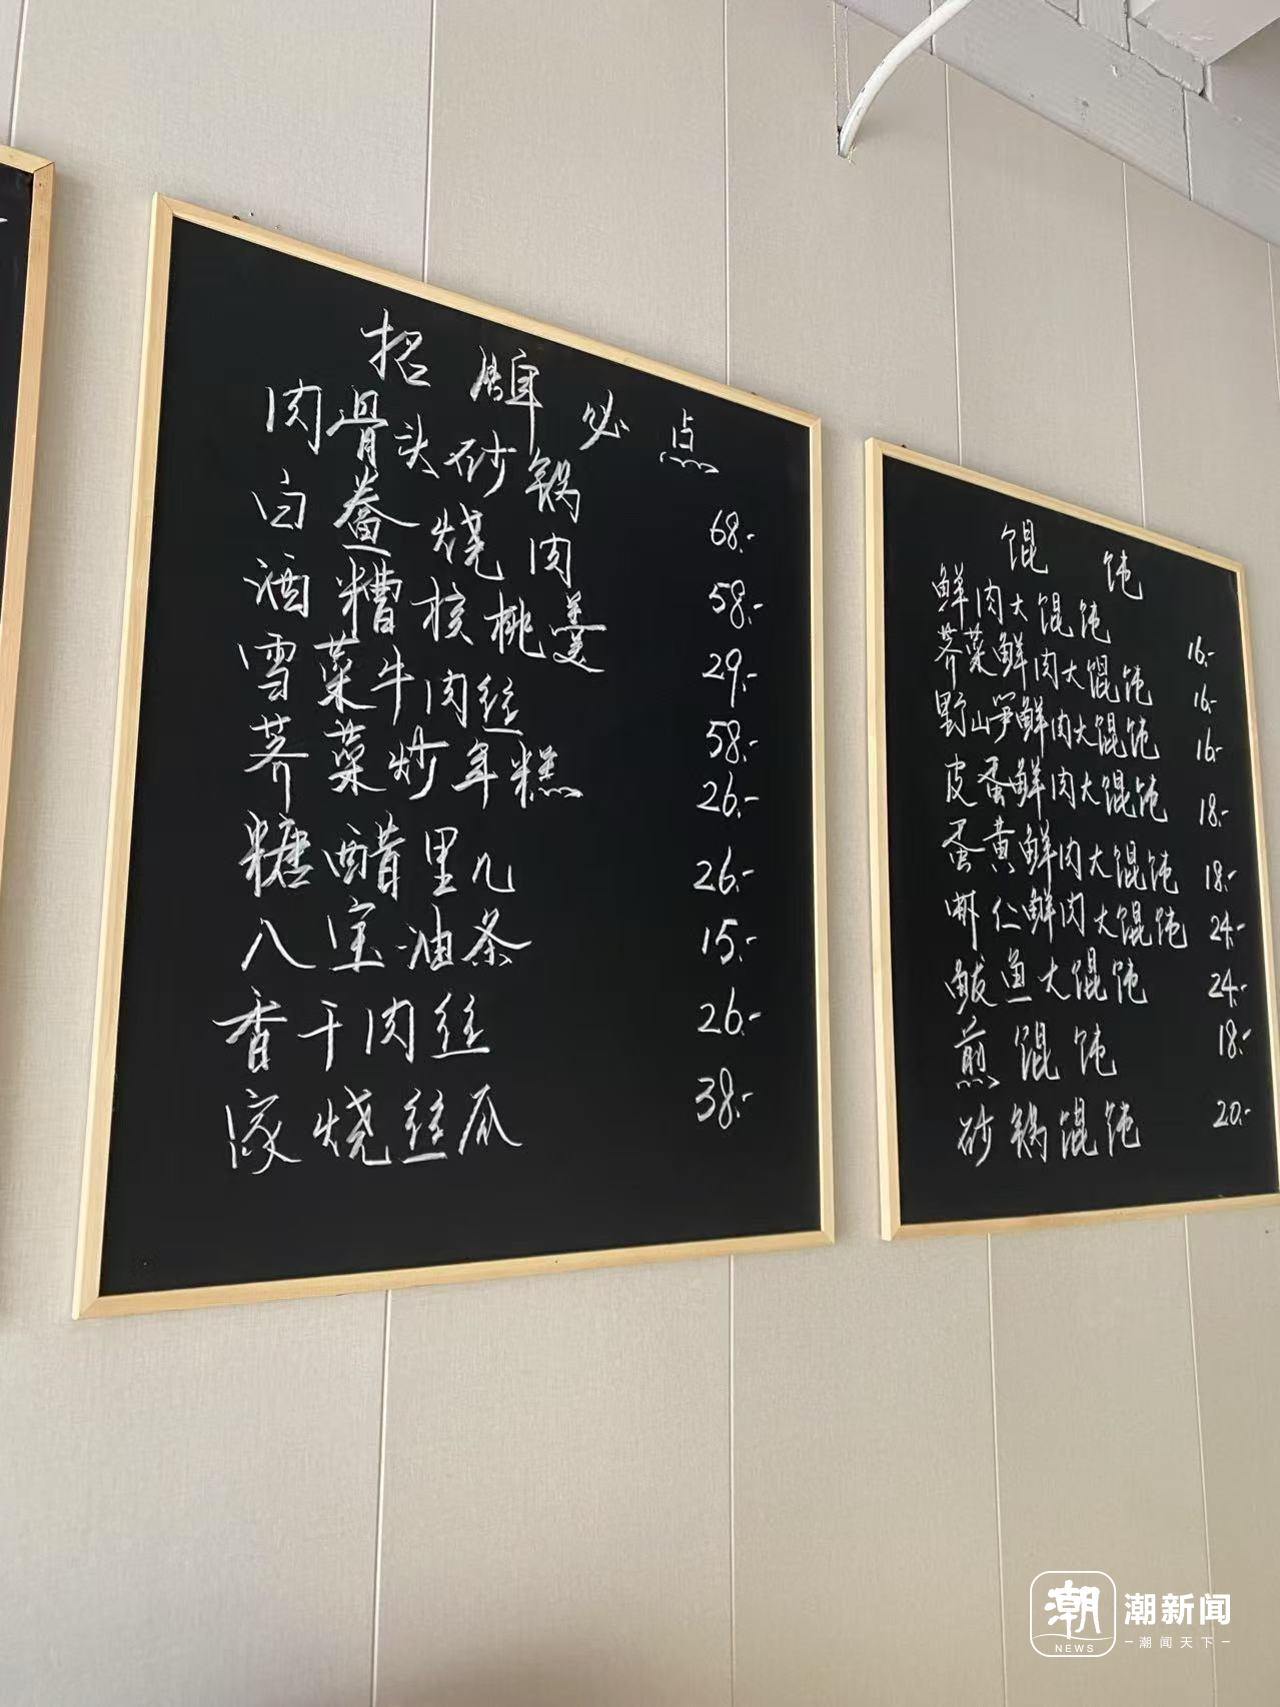 招牌必点
肉骨头砂锅 68.-
白鲞烧肉 58.-
酒糟核桃羹 29.-
雪菜牛肉丝 58.-
荠菜炒年糕 26.-
糖醋里几 26.-
八宝油条 15.-
香干肉丝 26.-
家烧丝瓜 38.-
馄饨
鲜肉大馄饨 16.-
荠菜鲜肉大馄饨 16.-
野山笋鲜肉大馄饨 16.-
皮蛋鲜肉大馄饨 18.-
蛋黄鲜肉大馄饨 18.-
虾仁鲜肉大馄饨 24.-
鲅鱼大馄饨 24.-
煎馄饨 18.-
砂锅馄饨 20.-
潮 NEWS
潮新闻
潮闻天下